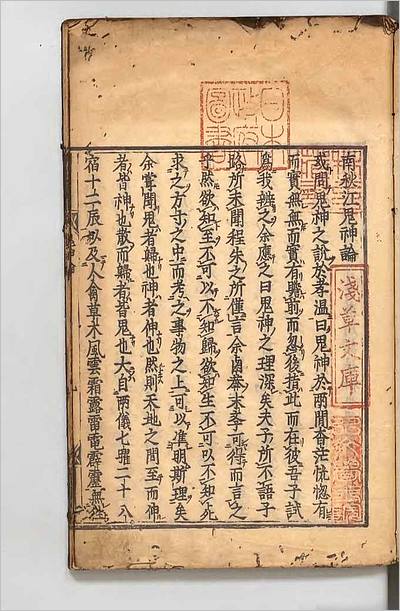 南秋江鬼神論
或問鬼神之說於孝溫曰鬼神於兩間杳茫恍惚有
而實無無而實有瞻前而忽後指此而在彼吾子試
爲我辨之余應之曰鬼神之理深矣夫子所不語子
路所未聞程朱之所僅言余鹵莽末季可得而言之
乎然欲知至不可以不知歸欲知生不可以不知死
求之方寸之中而考之事物之上可以準明斯理矣
余嘗聞鬼者歸也神者伸也然則天地之間至而伸
者皆神也散而歸者皆鬼也大自兩儀七曜二十八
宿十二辰以及人禽草木風雲霜露雷電霹靂無往
日本
政府
圖書
淺草文庫